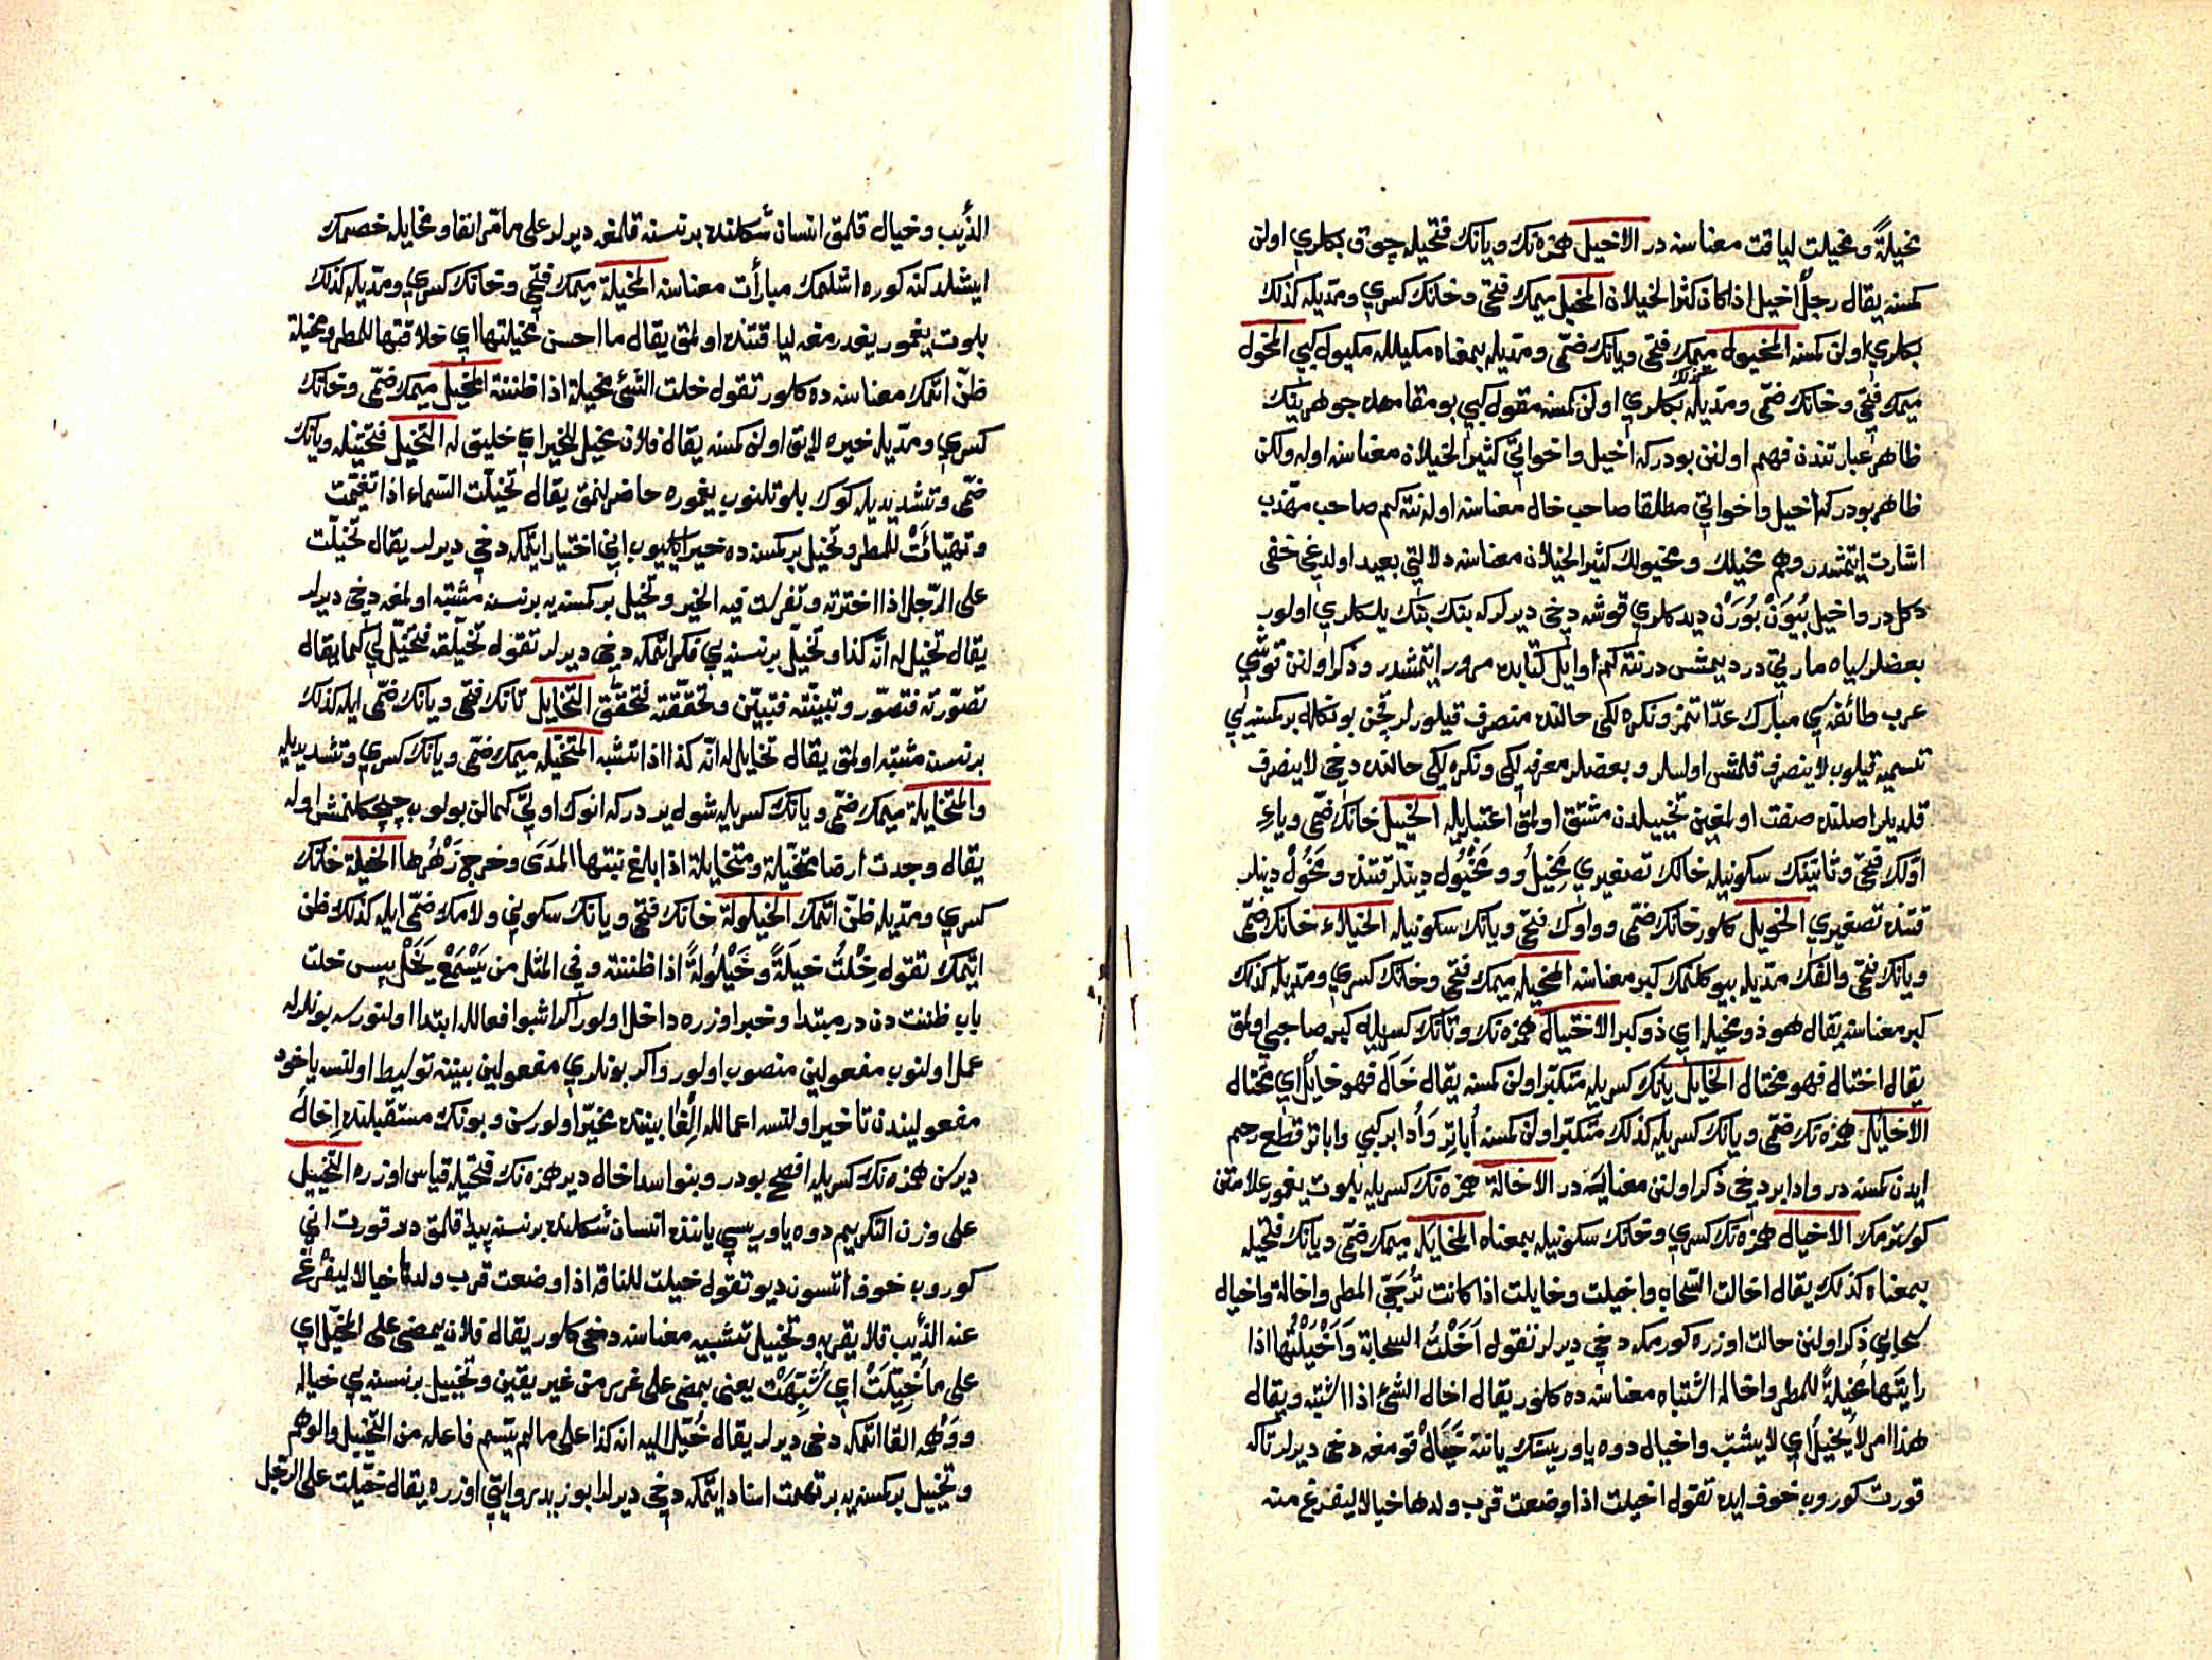 مخيلةً ومخيلت لياقت معناسنه در الاخيل همزه نك ويانك فتحيله چوق بكلري اولن
كمسنه يقال رجل اخيل اذا كان كثير الخيلان المخيل ميمك فتحى وخانك كسرى ومديله كذلك
بكلري اولن كمسنه المخيول ميمك فتحى ويانك ضمى ومديله بمعناه مكيل له مكيول كبي المخول
ميمك فتحى وخانك ضمى ومديله بكلري اولن كمسنه مقول كبي بو مقامده جوهرينك
ظاهر عبارتندن فهم اولنن بودر كه اخيل واخواتى كثير الخيلان معناسنه اوله ولكن
ظاهر بودر كه اخيل واخواتى مطلقا صاحب خال معناسنه اوله نته كم صاحب مهذب
اشارت ايتمشدر وهم مخيلك ومخيولك كثير الخيلان معناسنه دلالتى بعيد اولدغى خفى
دكل در واخيل بُيُوَنْ بُورَنْ ديدكلرى قوشه دخى ديرلر كه بتك بتك يلكلرى اولوب
بعضلر سياه مارتى در ديمشلر در نته كم اوايل كتابده مرور ايتمشدر وذكر اولنن قوشى
عرب طائفه سى مبارك عد اتمز ونكره لكى حالنده منصرف قيلورلر قچن بونكله بر كمسنه يى
تسميه قيلوب لا ينصرف قلمش اولسلر وبعضلر معرفه لكى ونكره لكى حالنده دخى لا ينصرف
قلديلر اصلنده صفت اولمغين تخييلدن مشتق اولمق اعتباريله الخييل خانك ضمى وياء
اولك فتحى وثانينك سكونيله خالك تصغيرى مَخِيلُ ومَخْيُول دينلر قتنده ومَخُول دينلر
قتنده تصغيرى الخويل كلور خانك ضمى وواوك فتحى ويانك سكونيله الخيلاء خانك ضمى
ويانك فتحى والفك مديله بيوكلنمك كبر معناسنه المخيله ميمك فتحى وخانك كسرى ومديله كذلك
كبر معناسنه يقال هو ذو مخيله اي ذو كبر الاختيال همزه نك وتانك كسريله كبر صاحبى اولمق
يقال اختال فهو مختال الخايل يانك كسريله متكبر اولن كمسنه يقال خَالَ فهو خايل اي مختال
الاخائل همزه نك ضمى ويانك كسريله كذلك متكبر اولن كمسنه أُباتِر وَأُدابر كبي واباتر قطع رحم
ايدن كمسنه در وادابر دخى ذكر اولنن معنايه در الاخالة همزه نك كسريله بلوت يغمور علامتن
كوسترمك الاخيال همزه نك كسرى وخانك سكونيله بمعناه المخايَل ميمك ضمى ويانك فتحيله
بمعناه كذلك يقال اخالت السحاب واخيلت وخايلت اذا كانت تُرَجّى المطر واخالة واخيال
سحابى ذكر اولنن حالت اوزره كورمكه دخى ديرلر تقول اَخَلْتُ السحابة وَاَخْيَلْتُها اذا
رايتها مُخيلةً للمطر واخاله اشتباه معناسنه ده كلور يقال اخال الشئ اذا اشتبه ويقال
هذا امر لا يُخيل اي لا يشتبه واخيال دوه ياوريسنك ياننه خَيَالْ قومغه دخى ديرلر تا كه
قورت كوروب خوف ايده تقول اخيلت اذا وضعت قرب ولدها خيالا ليفزع منه
الذئب وخيال قلمق انسان شكلنده برنسنه قلمغه ديرلر على ما مر انفا ومخايله خصمك
ايشلدكنه كوره اشلمك مبارات معناسنه المخيلة ميمك فتحى وخانك كسرى ومديله كذلك
بلوت يغمور يغدرمغه لياقتنده اولمق يقال ما احسن مخيلتها اي خلاقتها للمطر ومخيلة
ظن اتمك معناسنه ده كلور تقول خلت الشئ مخيلة اذا ظننته المخيل ميمك ضمى وخانك
كسرى ومديله خيره لايق اولن كمسنه يقال فلان مخيل للخير اي خليق له التخيل فتحتيله ويانك
ضمى وتشديديله كوك بلوتلنوب يغموره حاضرلنمق يقال تخيلت السماء اذا تغيمت
وتهيأتْ للمطر وتخيل بر كمسنه ده خير اكليوب انى اختيار ايتمكه دخى ديرلر يقال تخيلت
على الرجل اذا اخترته وتفرست فيه الخير وتخيل بر كمسنه يه برنسنه مشتبه اولمغه دخى ديرلر
يقال تخيل له انه كذا وتخيل برنسنه يى فكر اتمكه دخى ديرلر تقول تخيلته فتخيل لي كما يقال
تصورته فتصور وتبينته فتبين وتحققته فتحقق التخايل تانك فتحى ويانك ضمى ايله كذلك
برنسنه مشتبه اولمق يقال تخايل له انه كذا اذا تشبه المتخيله ميمك ضمى ويانك كسرى وتشديديله
والمتخايلة ميمك ضمى ويانك كسريله شول يردر كه انوك اوتى كمالن بولوب چچكلنمش اوله
يقال وجدت ارضا متخيلة ومتخايلة اذا بلغ نبتها المدَى وخرج زَهْرُها الخيلة خانك
كسرى ومديله ظن اتمك الخيلولة خانك فتحى ويانك سكونى ولامك ضمى ايله كذلك ظن
ايتمك تقول خِلْتُ خيلَةً وخَيْلُولةً اذا ظننته وفي المثل من يَسْمَعْ يَخَلْ پس خلت
باب ظننت دن در مبتدا وخبر اوزره داخل اولور اكر اشبو افعال له ابتدا اولنورسه بونلرله
عمل اولنوب مفعولين منصوب اولور واكر بونلرى مفعولين بيننه توسيط اولنسه ياخود
مفعوليندن تاخير اولنسه اعمال له اِلْغا بيننده مخير اولورسن وبونك مستقبلنده اِخالُ
ديرسن همزه نك كسريله افصح بودر وبنوا سد اخال دير همزه نك فتحيله قياس اوزره التخييل
على وزن التكريم دوه ياوريسى ياننده انسان شكلنده برنسنه پيدا قلمق در قورت انى
كوروب خوف اتسون ديو تقول خيلت للناقة اذا وضعت قرب ولدها خيالا ليفزع
عنه الذئب فلا يقربه وتخييل تشبيه معناسنه دخى كلور يقال فلان يمضى على المخيل اي
على ما خُيلتْ اي شُبِّهَتْ يعنى يمضى على غرر من غير يقين وتخييل برنسنه يى خياله
ووهمه القا اتمكه دخى ديرلر يقال خُيّل اليه انه كذا على ما لم يسم فاعله من التخييل والوهم
وتخييل بر كمسنه يه بر تهمت اسناد ايتمكه دخى ديرلر ابو زيد روايتى اوزره يقال خيلت على الرجل